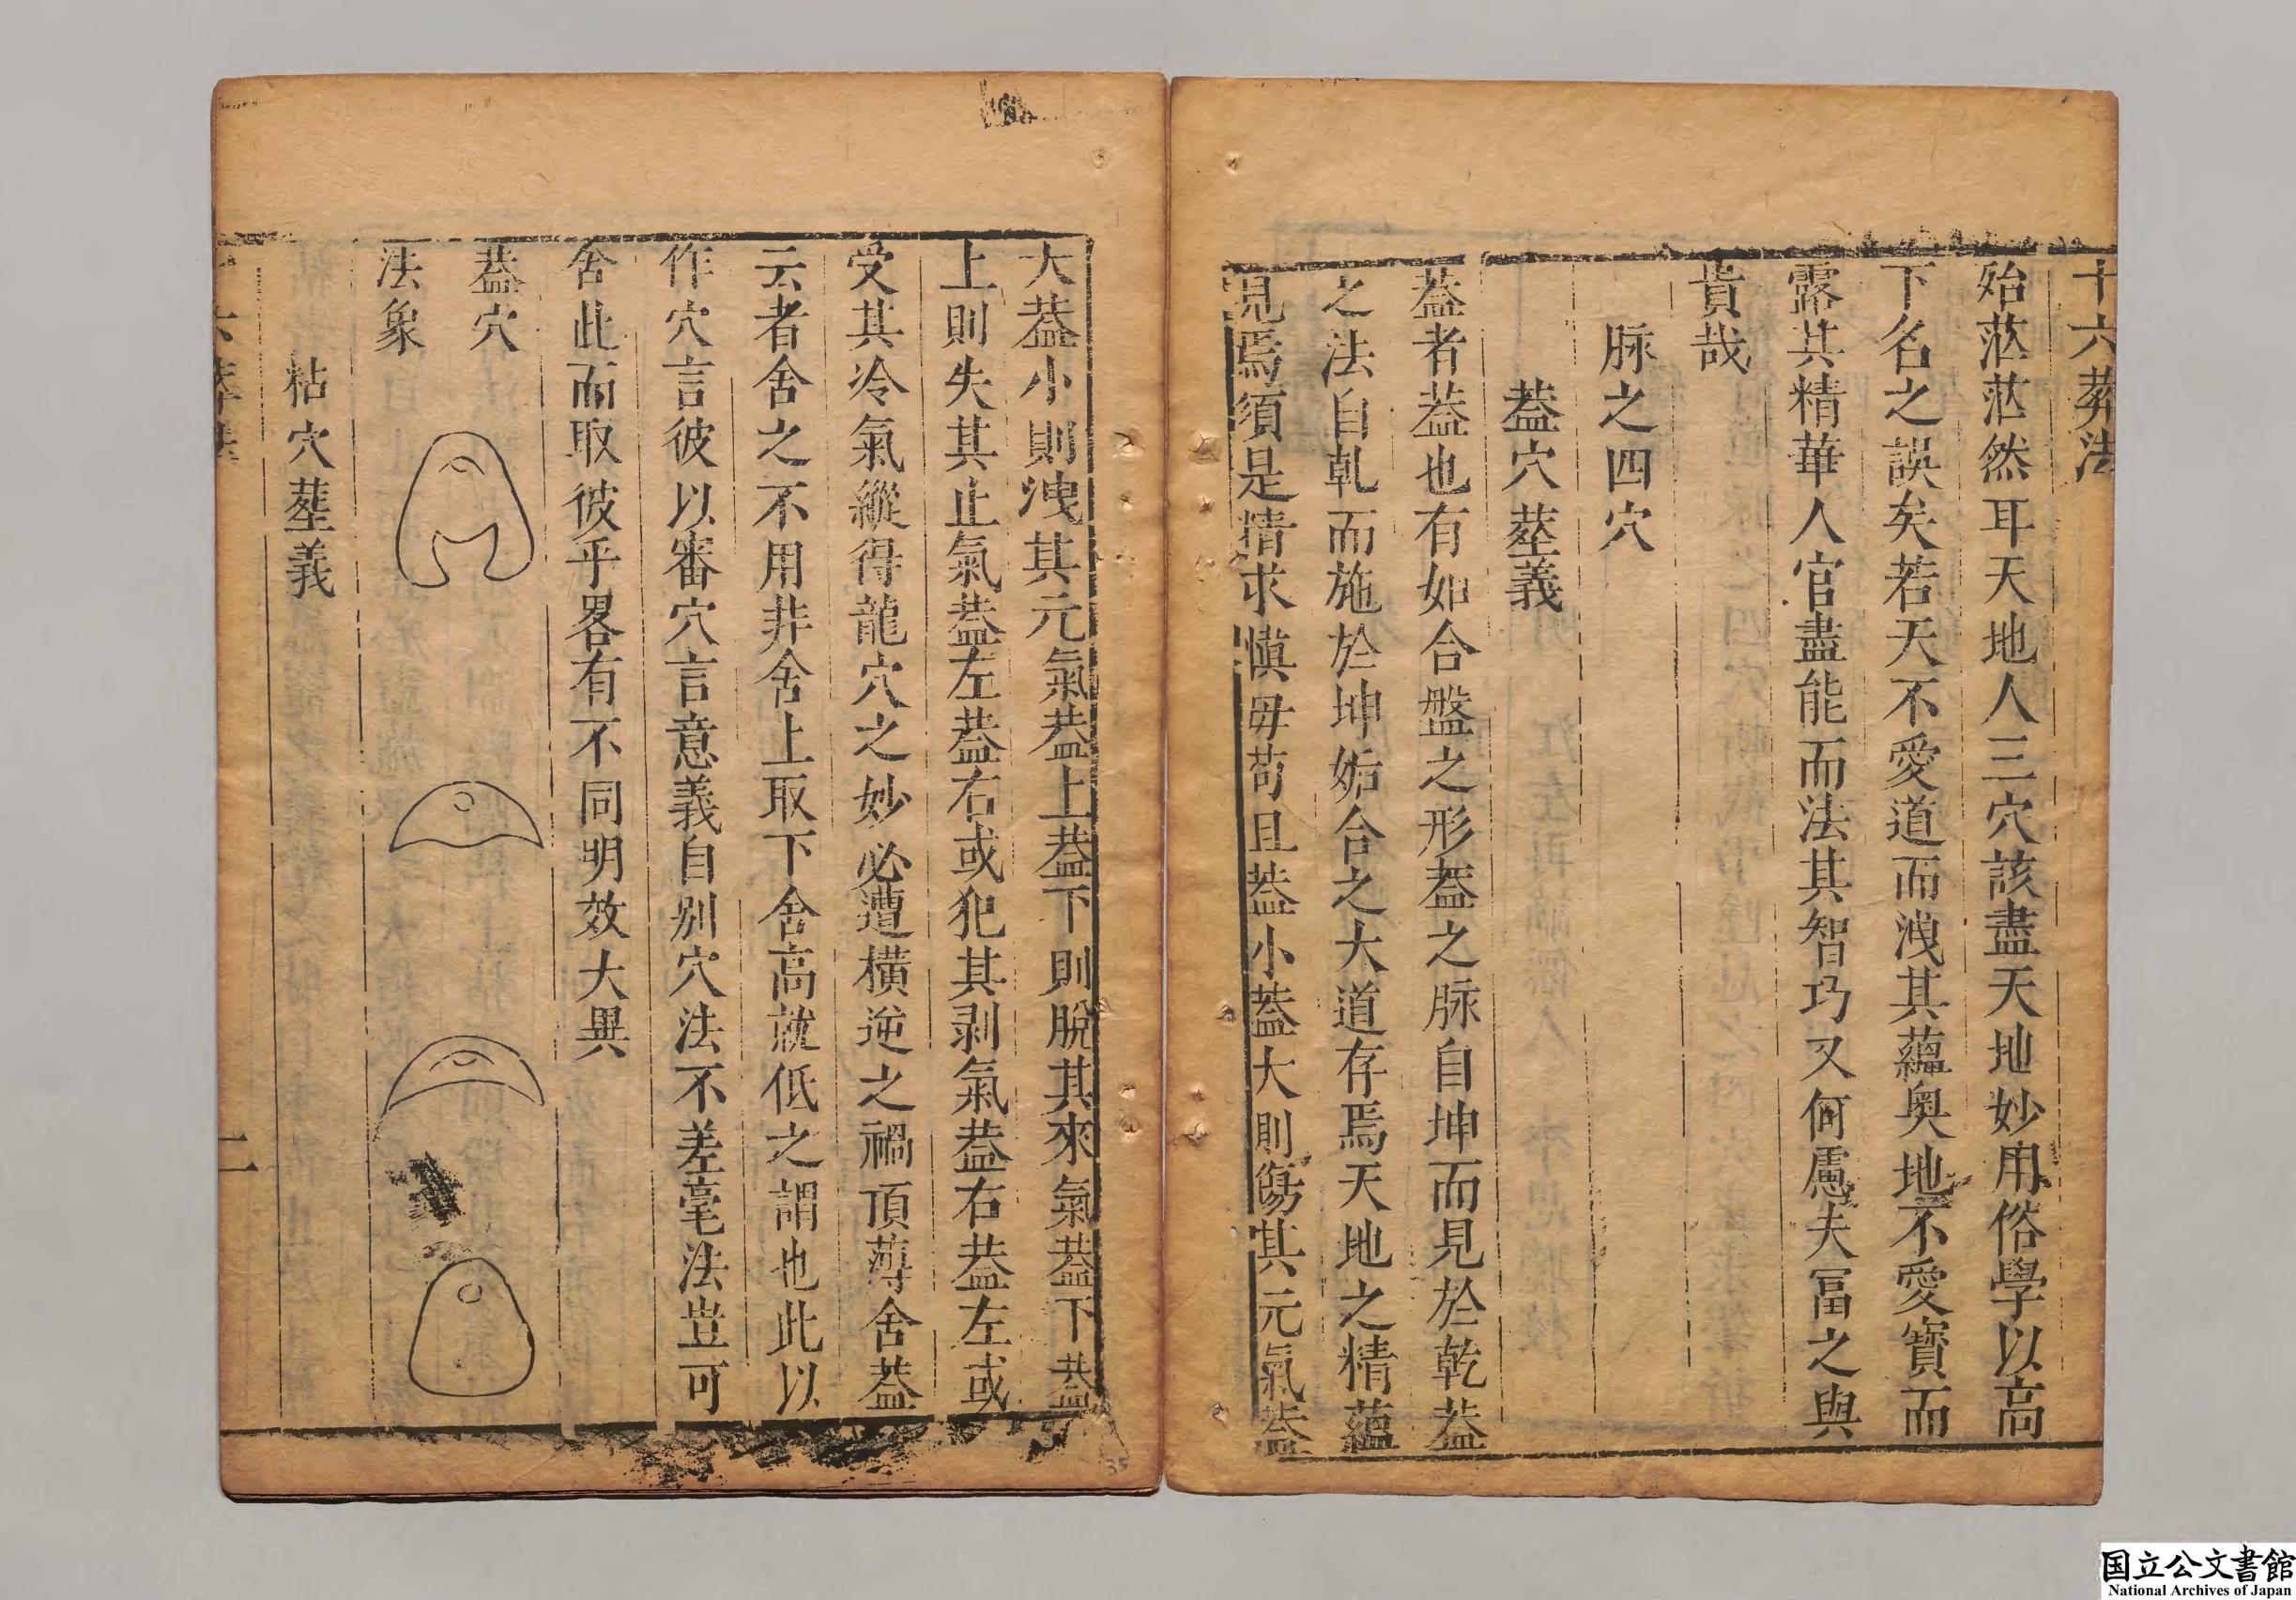 十六葬法
始茫茫然耳天地人三穴該盡天地妙用俗學以高
下名之誤矣若天不愛道而洩其蘊奧地不愛寶而
露其精華人官盡能而法其智巧又何慮夫冨之與
貴哉
脉之四穴
葢穴塟義
葢者葢也有如合盤之形葢之脉自坤而見於乾葢
之法自乹而施於坤姤合之大道存焉天地之精蘊
見焉須是精求慎毋苟且葢小葢大則傷其元氣葢
大葢小則洩其元氣葢上葢下則脫其來氣葢下葢
上則失其止氣葢左葢右或犯其剥氣葢右葢左或
受其冷氣縱得龍穴之妙必遭橫逆之禍頂薄舍葢
云者舍之不用非舍上取下舍高就低之謂也此以
作穴言彼以審穴言意義自别穴法不差毫法豈可
舍此而取彼乎畧有不同明效大異
葢穴
法象
粘穴塟義
十六葬法
二
国立公文書館
National Archives of Japan